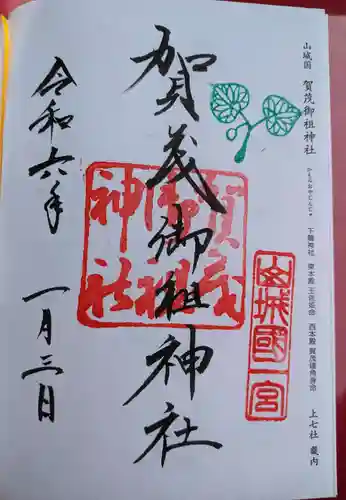 山城国 賀茂御祖神社
かもみおやじんじゃ
下鴨神社 東本殿 玉依姫命 西本殿 賀茂建角身命
上七社 畿内
山城國一宮
賀茂御祖神社
賀茂御祖神社
令和六年
一月三日